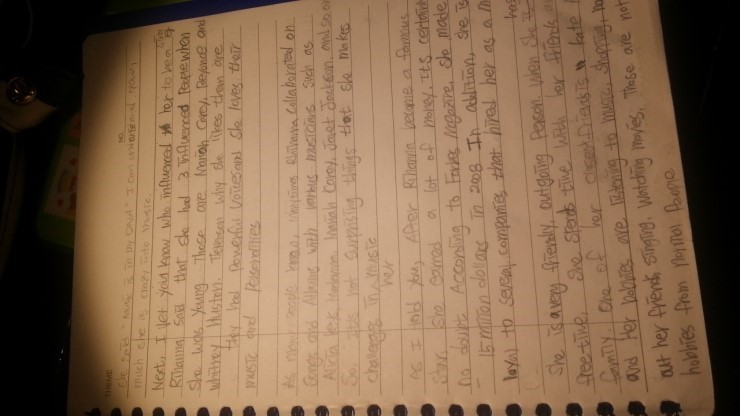 She said "Music is in my
much she is crazy into music.
Next, I let you know who influenced her to be a
Rihanna said that she had 3 Influenced People when
she was Young. Those are Mariah Carey, Beyonce and
Whitney Huston. The reason why she likes them are
they had Powerful voices and she loves their
music and personalities
As many people know, Rihanna collaborated on
Songs and Albums with various musicians such as
Mariah Carey, Janet Jackson, and so on
So, It's not surprising things that she makes
challenges in music
her
As I told you, After Rihanna become a famous
star she earned a lot of money. It's certain
no doubt. According to Forbes Magazine, she made
15 million dollars in 2008. In addition, she is
loyal to several companies that hired her as a
She is a very friendly, outgoing person when she
free-time, she spends time with her friends
family. One of her closest friends is Kate
and Her hobbies are listening to music, shopping,
out her friends, singing, watching movies. Those are not
hobbies from normal People